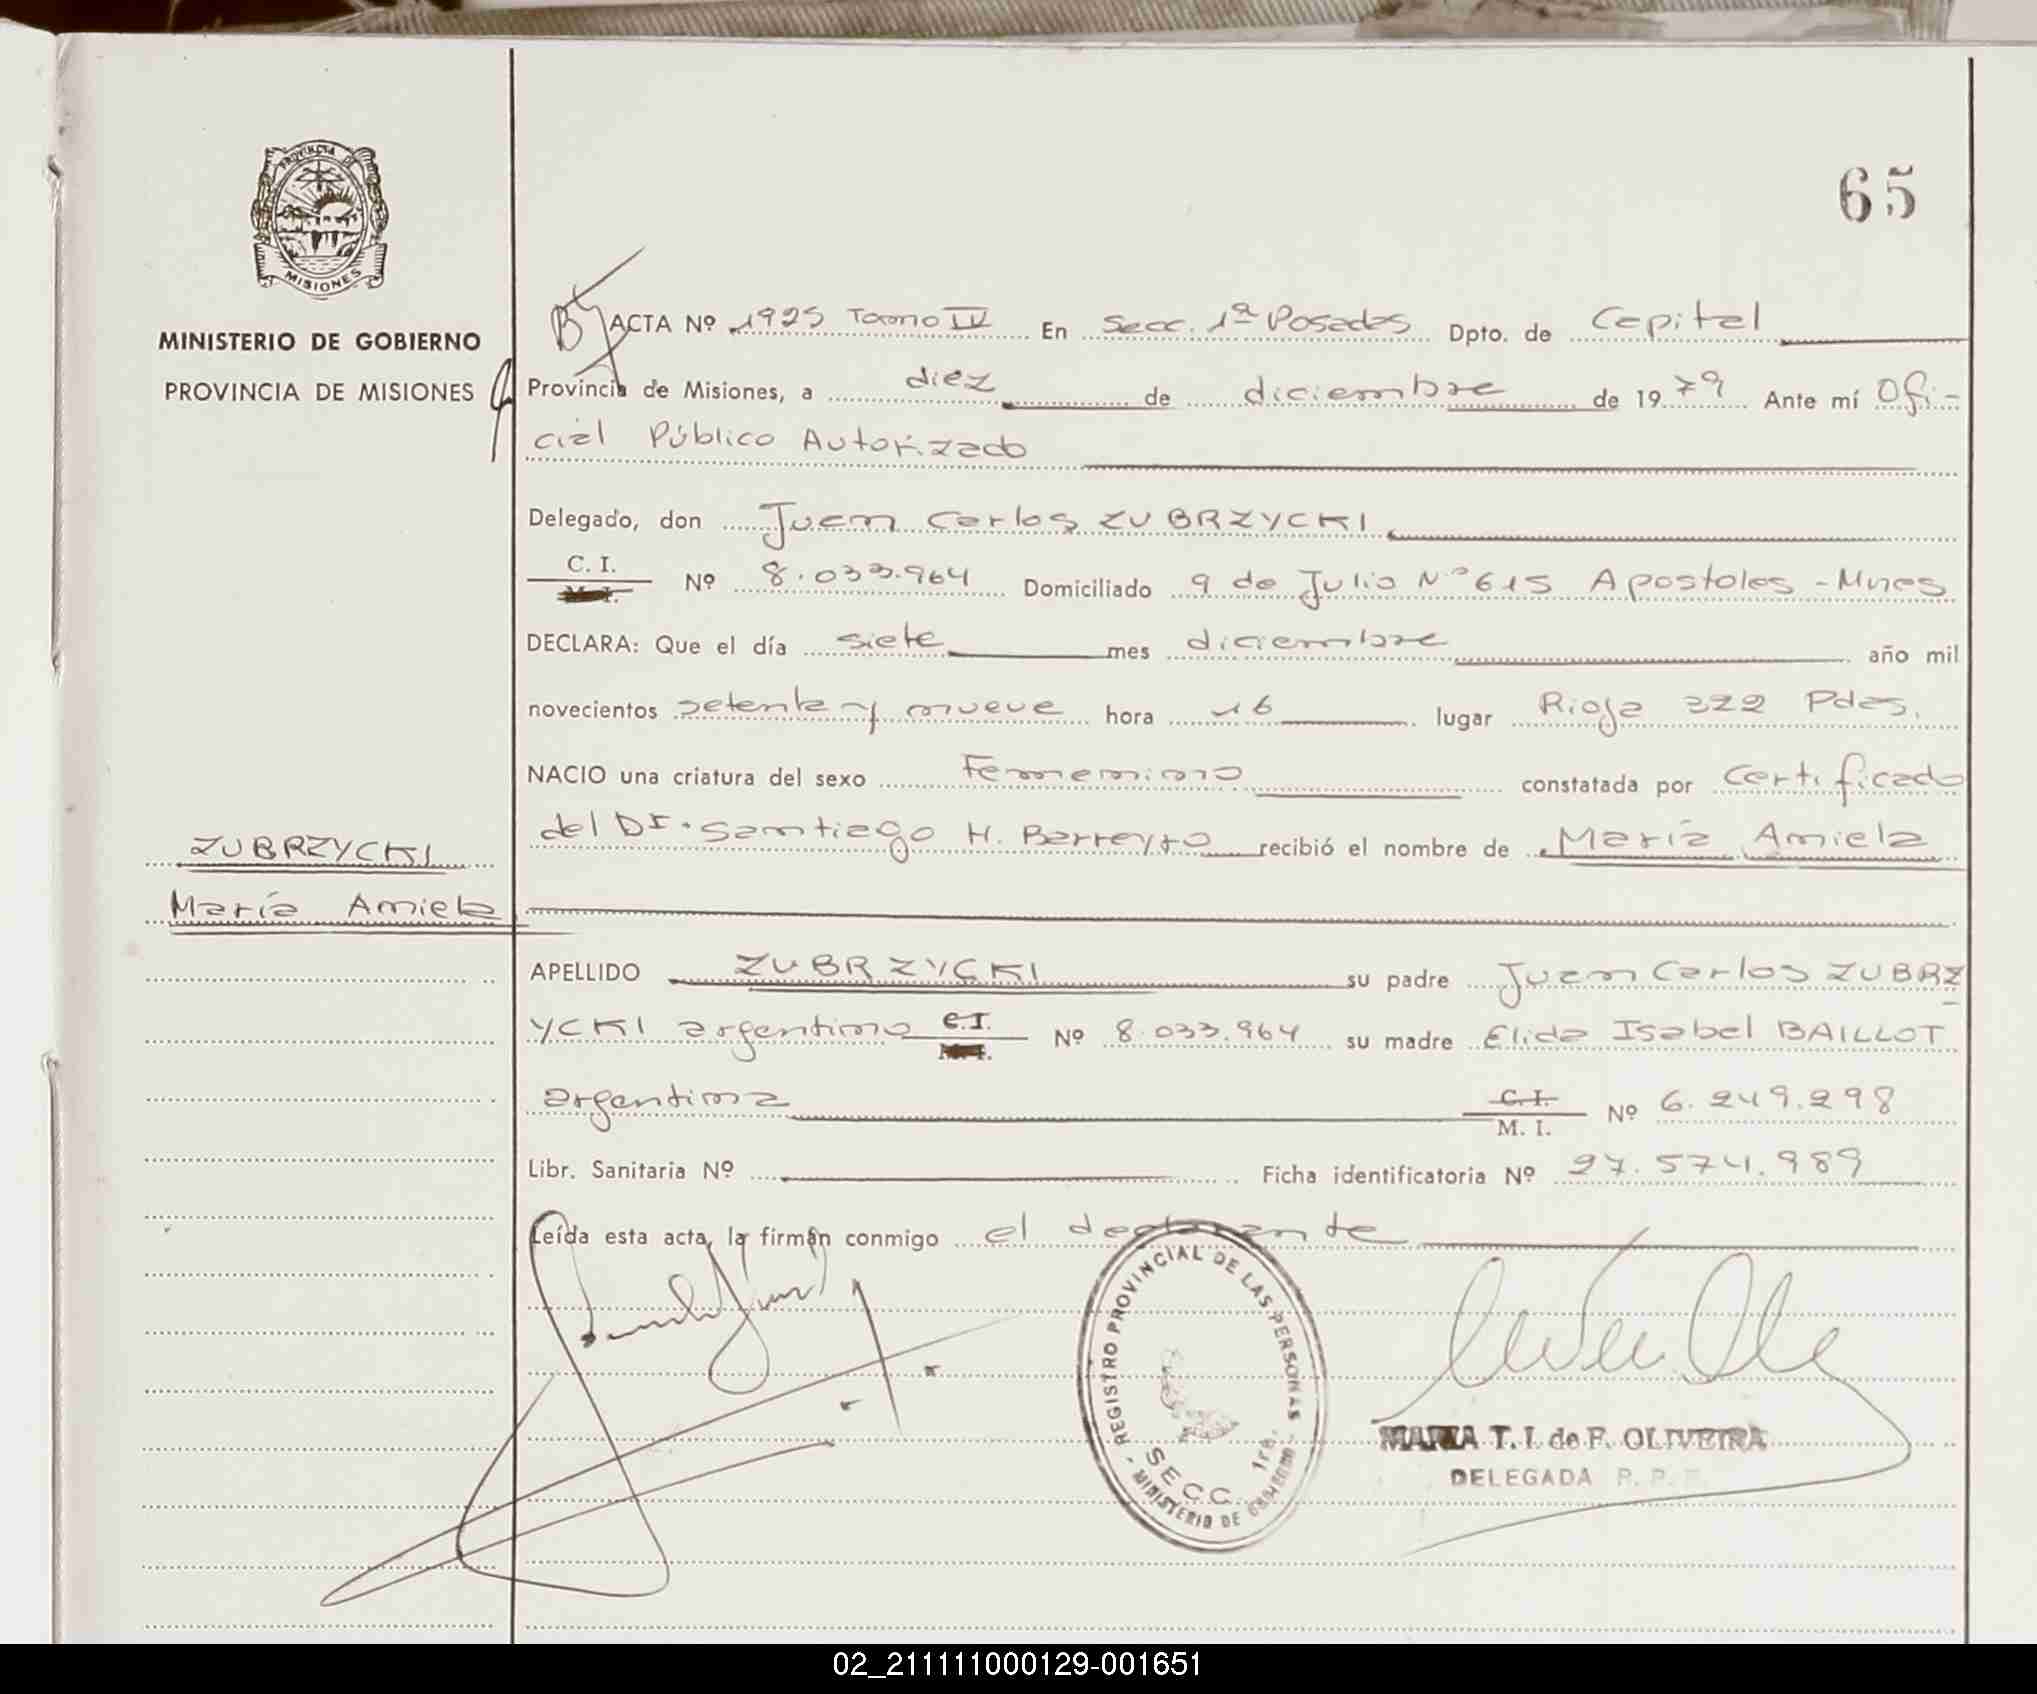 PROVINCIA DE
MISIONES
MINISTERIO DE GOBIERNO
PROVINCIA DE MISIONES
65
ACTA Nº 1925 Tomo IV En Secc. 1ª Posadas Dpto. de Capital
Provincia de Misiones, a diez de diciembre de 1979 Ante mí Ofi-
cial Público Autorizado
Delegado, don Juan Carlos ZUBRZYCKI
C. I.
M. I.
Nº 8.033.964 Domiciliado 9 de Julio Nº 615 Apostoles - Mnes
DECLARA: Que el día siete mes diciembre año mil
novecientos setenta y nueve hora 16 lugar Rioja 322 Pdas.
NACIO una criatura del sexo Femenino constatada por Certificado
del Dr. Santiago H. Barreyro recibió el nombre de María Amiela
ZUBRZYCKI
María Amiela
APELLIDO ZUBRZYCKI su padre Juan Carlos ZUBRZ
YCKI argentino C.I. Nº 8.033.964 su madre Elida Isabel BAILLOT
M.I.
argentina C. I. Nº 6.249.298
M. I.
Libr. Sanitaria Nº Ficha identificatoria Nº 27.574.989
Leída esta acta, la firman conmigo el declarante
REGISTRO PROVINCIAL DE LAS PERSONAS
SECC. 1ra.
- MINISTERIO DE GOBIERNO -
MARIA T. I. de F. OLIVEIRA
DELEGADA R. P.
02_211111000129-001651